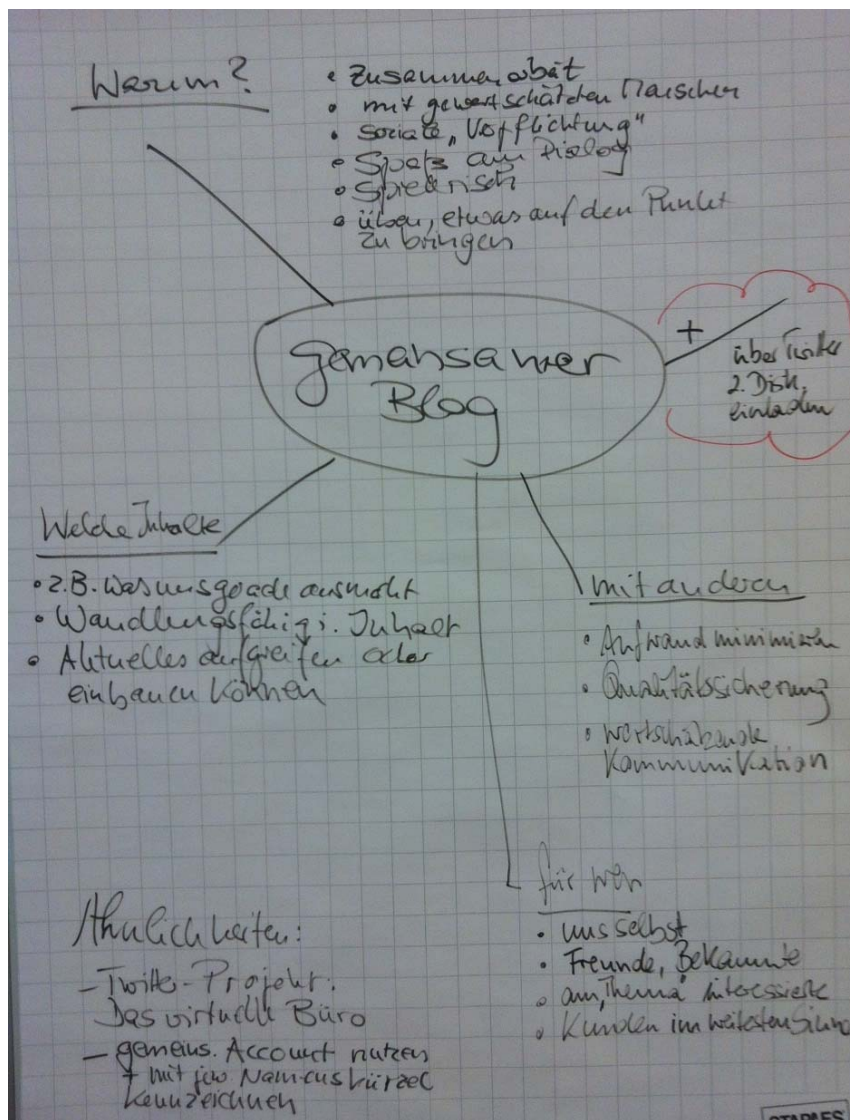 Warum?
• Zusammenarbeit
• mit gewertschätzten Menschen
• soziale „Verpflichtung"
• Spaß am Dialog
• Spielerisch
• üben, etwas auf den Punkt
zu bringen
gemeinsamer
Blog
+
über Twitter
z. Disk.
einladen
Welche Inhalte
• z.B. was uns gerade ausmacht
• Wandlungsfähig i. Inhalt
• Aktuelles aufgreifen oder
einbauen können
mit anderen
• Aufwand minimieren
• Qualitätssicherung
• wertschätzende
Kommunikation
für wen
• uns selbst
• Freunde, Bekannte
• am „Thema" Interessierte
• Kunden im weitesten Sinne
Ähnlichkeiten:
– Twitter-Projekt:
Das virtuelle Büro
– gemeins. Account nutzen
+ mit jew. Namenskürzel
kennzeichnen
STAPLES